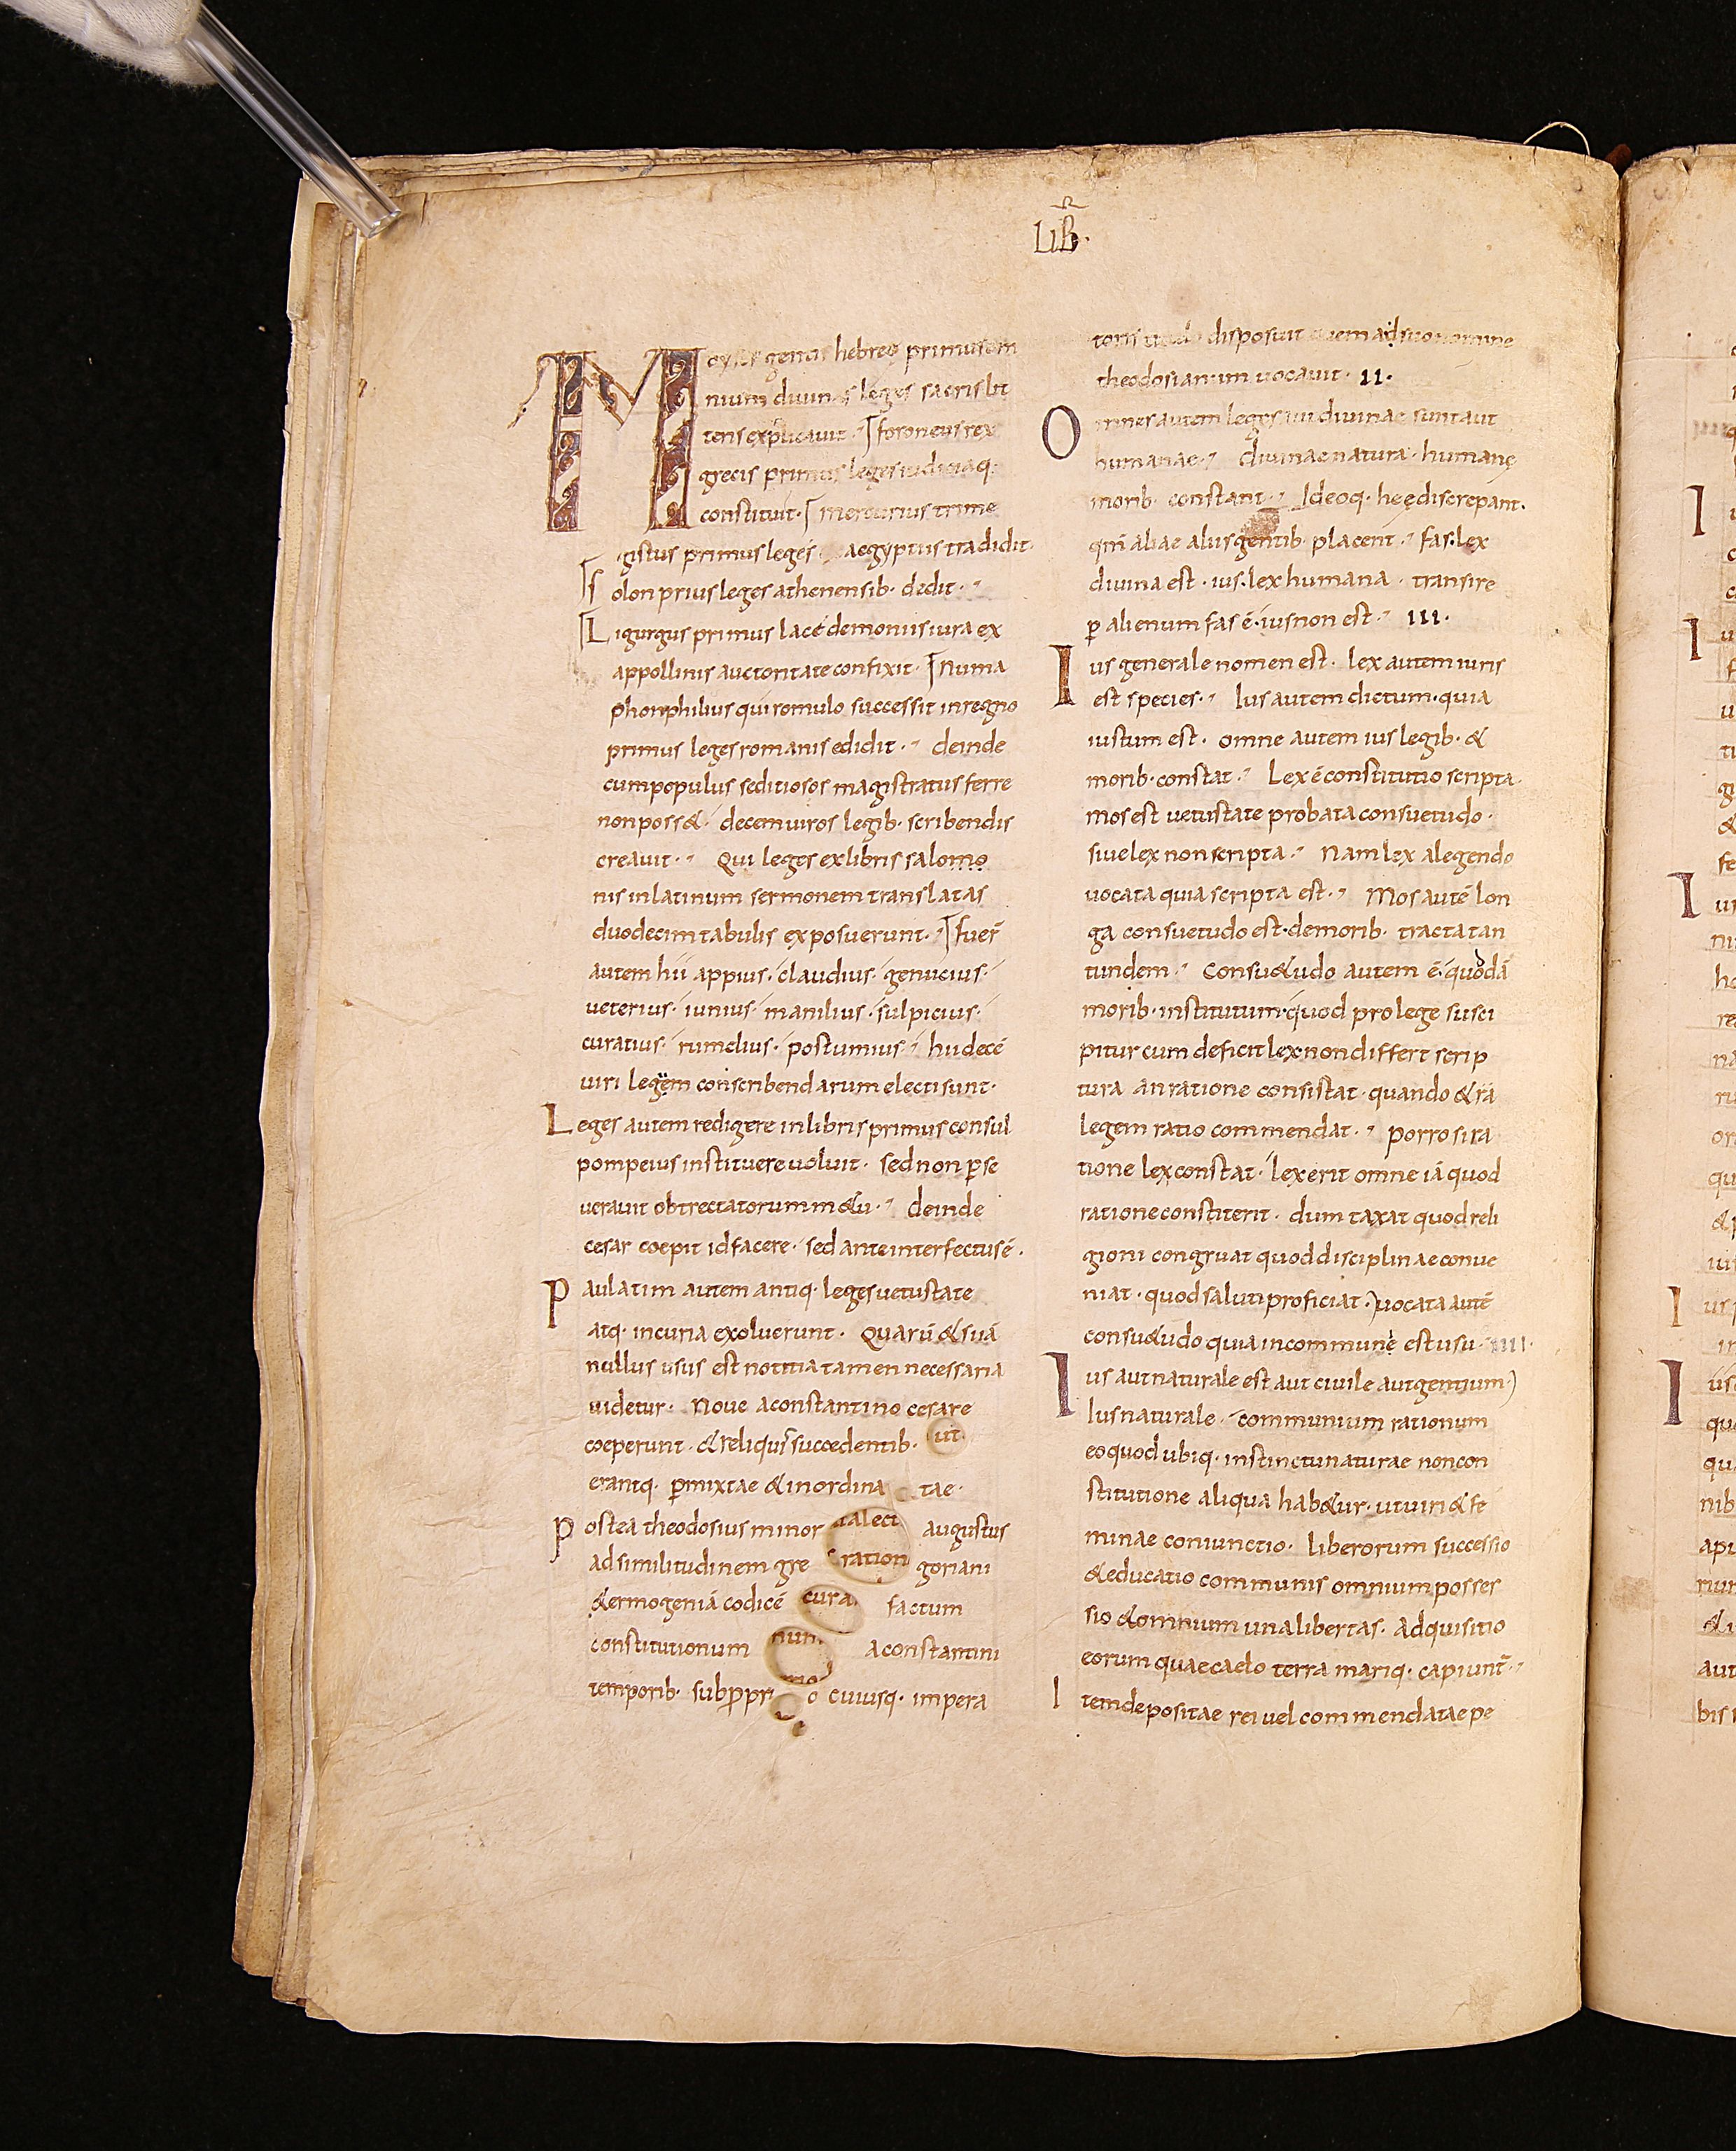 LIB̄·
Moyses gentis hebreę primus om
nium diuinas leges sacris lit
teris explicauit · foroneus rex
grecis primus leges iudiciaq·
constituit· mercurius trime
gistus primus leges aegyptiis tradidit·
Solon prius leges athenensib· dedit·
Ligurgus primus lacedemoniis iura ex
appollinis auctoritate confixit· Numa
phonphilius qui romulo successit in regno
primus leges romanis edidit· deinde
cum populus seditiosos magistratus ferre
non poss& decemuiros legib· scribendis
creauit· Qui leges ex libris salomo
nis in latinum sermonem translatas
duodecim tabulis exposuerunt· fuer̄
autem hii appius· claudius· genucius·
ueterius· iunius· manilius· sulpicius·
curatius· rumelius· postumius· hii decē
uiri legem conscribendarum electi sunt·
Leges autem redigere in libris primus consul
pompeius instituere uoluit· sed non ꝑse
uerauit obtrectatorum m&u· deinde
cesar coepit id facere· sed ante interfectus ē·
Paulatim autem antiq· leges uetustate
atq· incuria exoluerunt· Quarū & suā
nullus usus est notitia tamen necessaria
uidetur· Noue a constantino cesare
coeperunt· & reliquis succedentib·
erantq· ꝑmixtae & inordina tae·
Postea theodosius minor augustus
ad similitudinem gre goriani
& ermogeniā codicē factum
constitutionum a constantini
temporib· sub ꝓpri o cuiusq· impera
toris titulo disposuit quem a suo nomine
theodosianum uocauit· II·
Omnes autem leges aut diuinae sunt aut
humanae· diuinae natura· humanę
morib· constant· Ideoq· hęę discrepant·
qm̄ aliae aliis gentib· placent· fas· lex
diuina est· ius· lex humana· transire
ꝑ alienum fas ē· ius non est· III·
Ius generale nomen est· lex autem iuris
est species· Ius autem dictum· quia
iustum est· omne autem ius legib· &
morib· constat· Lex ē constitutio scripta·
mos est uetustate probata consuetudo·
siue lex non scripta· Nam lex a legendo
uocata quia scripta est· Mos autē lon
ga consuetudo est· de morib· tracta tan
tundem· Consu&udo autem ē· quoddā
morib· institutum· quod pro lege susci
pitur cum deficit lex· non differt scrip
tura an ratione consistat· quando & rā
legem ratio commendat· porro si ra
tione lex constat· lex erit omne iā quod
ratione constiterit· dum taxat quod reli
gioni congruat quod disciplinae conue
niat· quod saluti proficiat· uocata autē
consu&udo quia in commune est usu· IIII·
Ius aut naturale est aut ciuile aut gentium·
Ius naturale· communium rationum
eo quod ubiq· instinctu naturae non con
stitutione aliqua hab&ur· ut uiri & fe
minae coniunctio· liberorum successio
& educatio communis omnium posses
sio & omnium una libertas· adquisitio
eorum quae caelo terra mariq· capiunt̄·
Item depositae rei uel commendatae pe